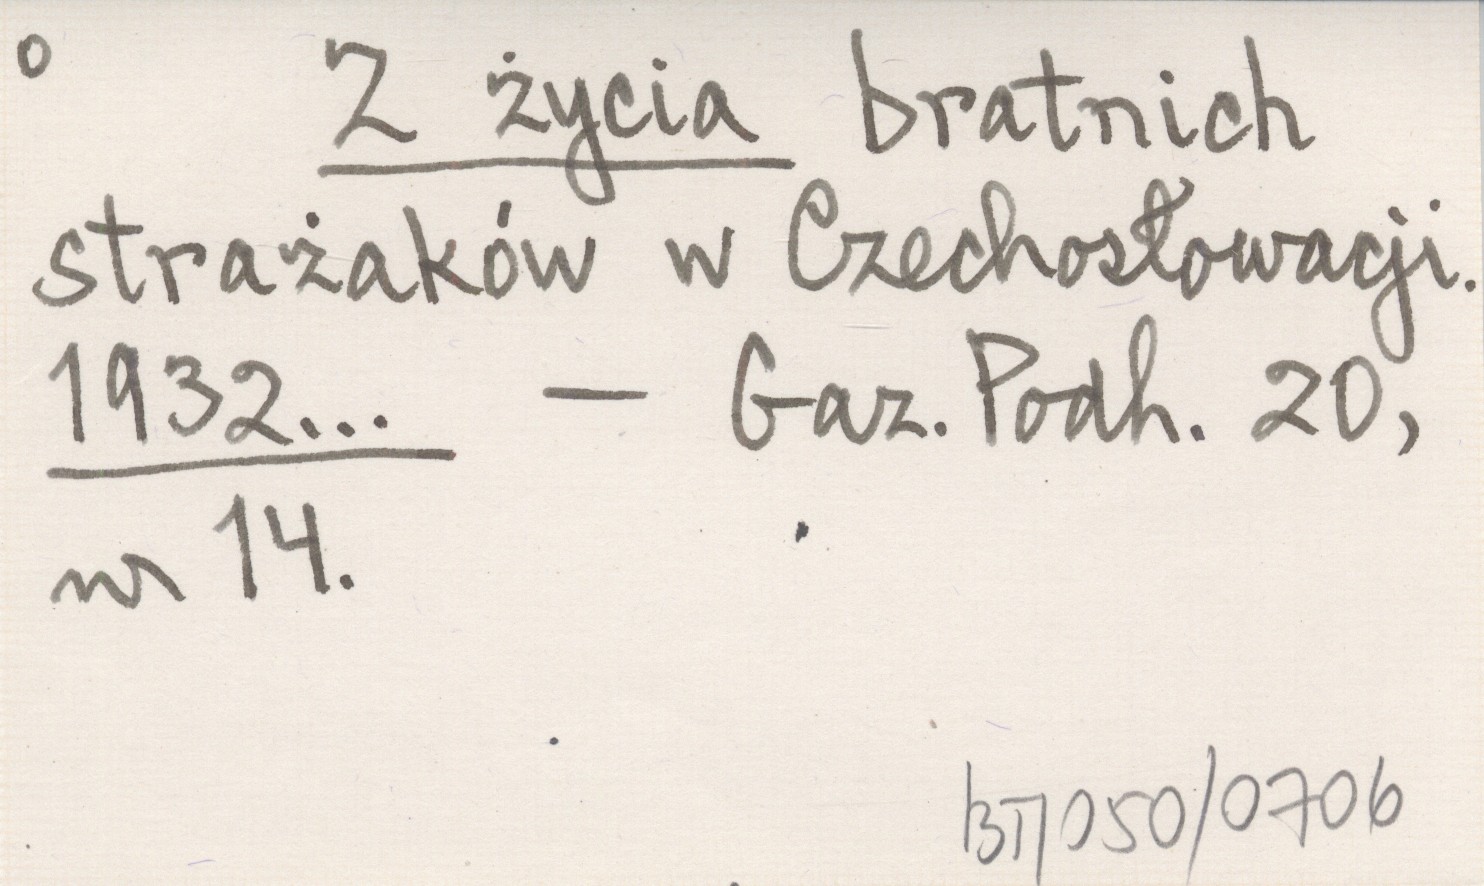 o Z życia bratnich
strażaków w Czechosłowacji.
1932... — Gaz. Podh. 20,
nr 14.
BT/050/0706